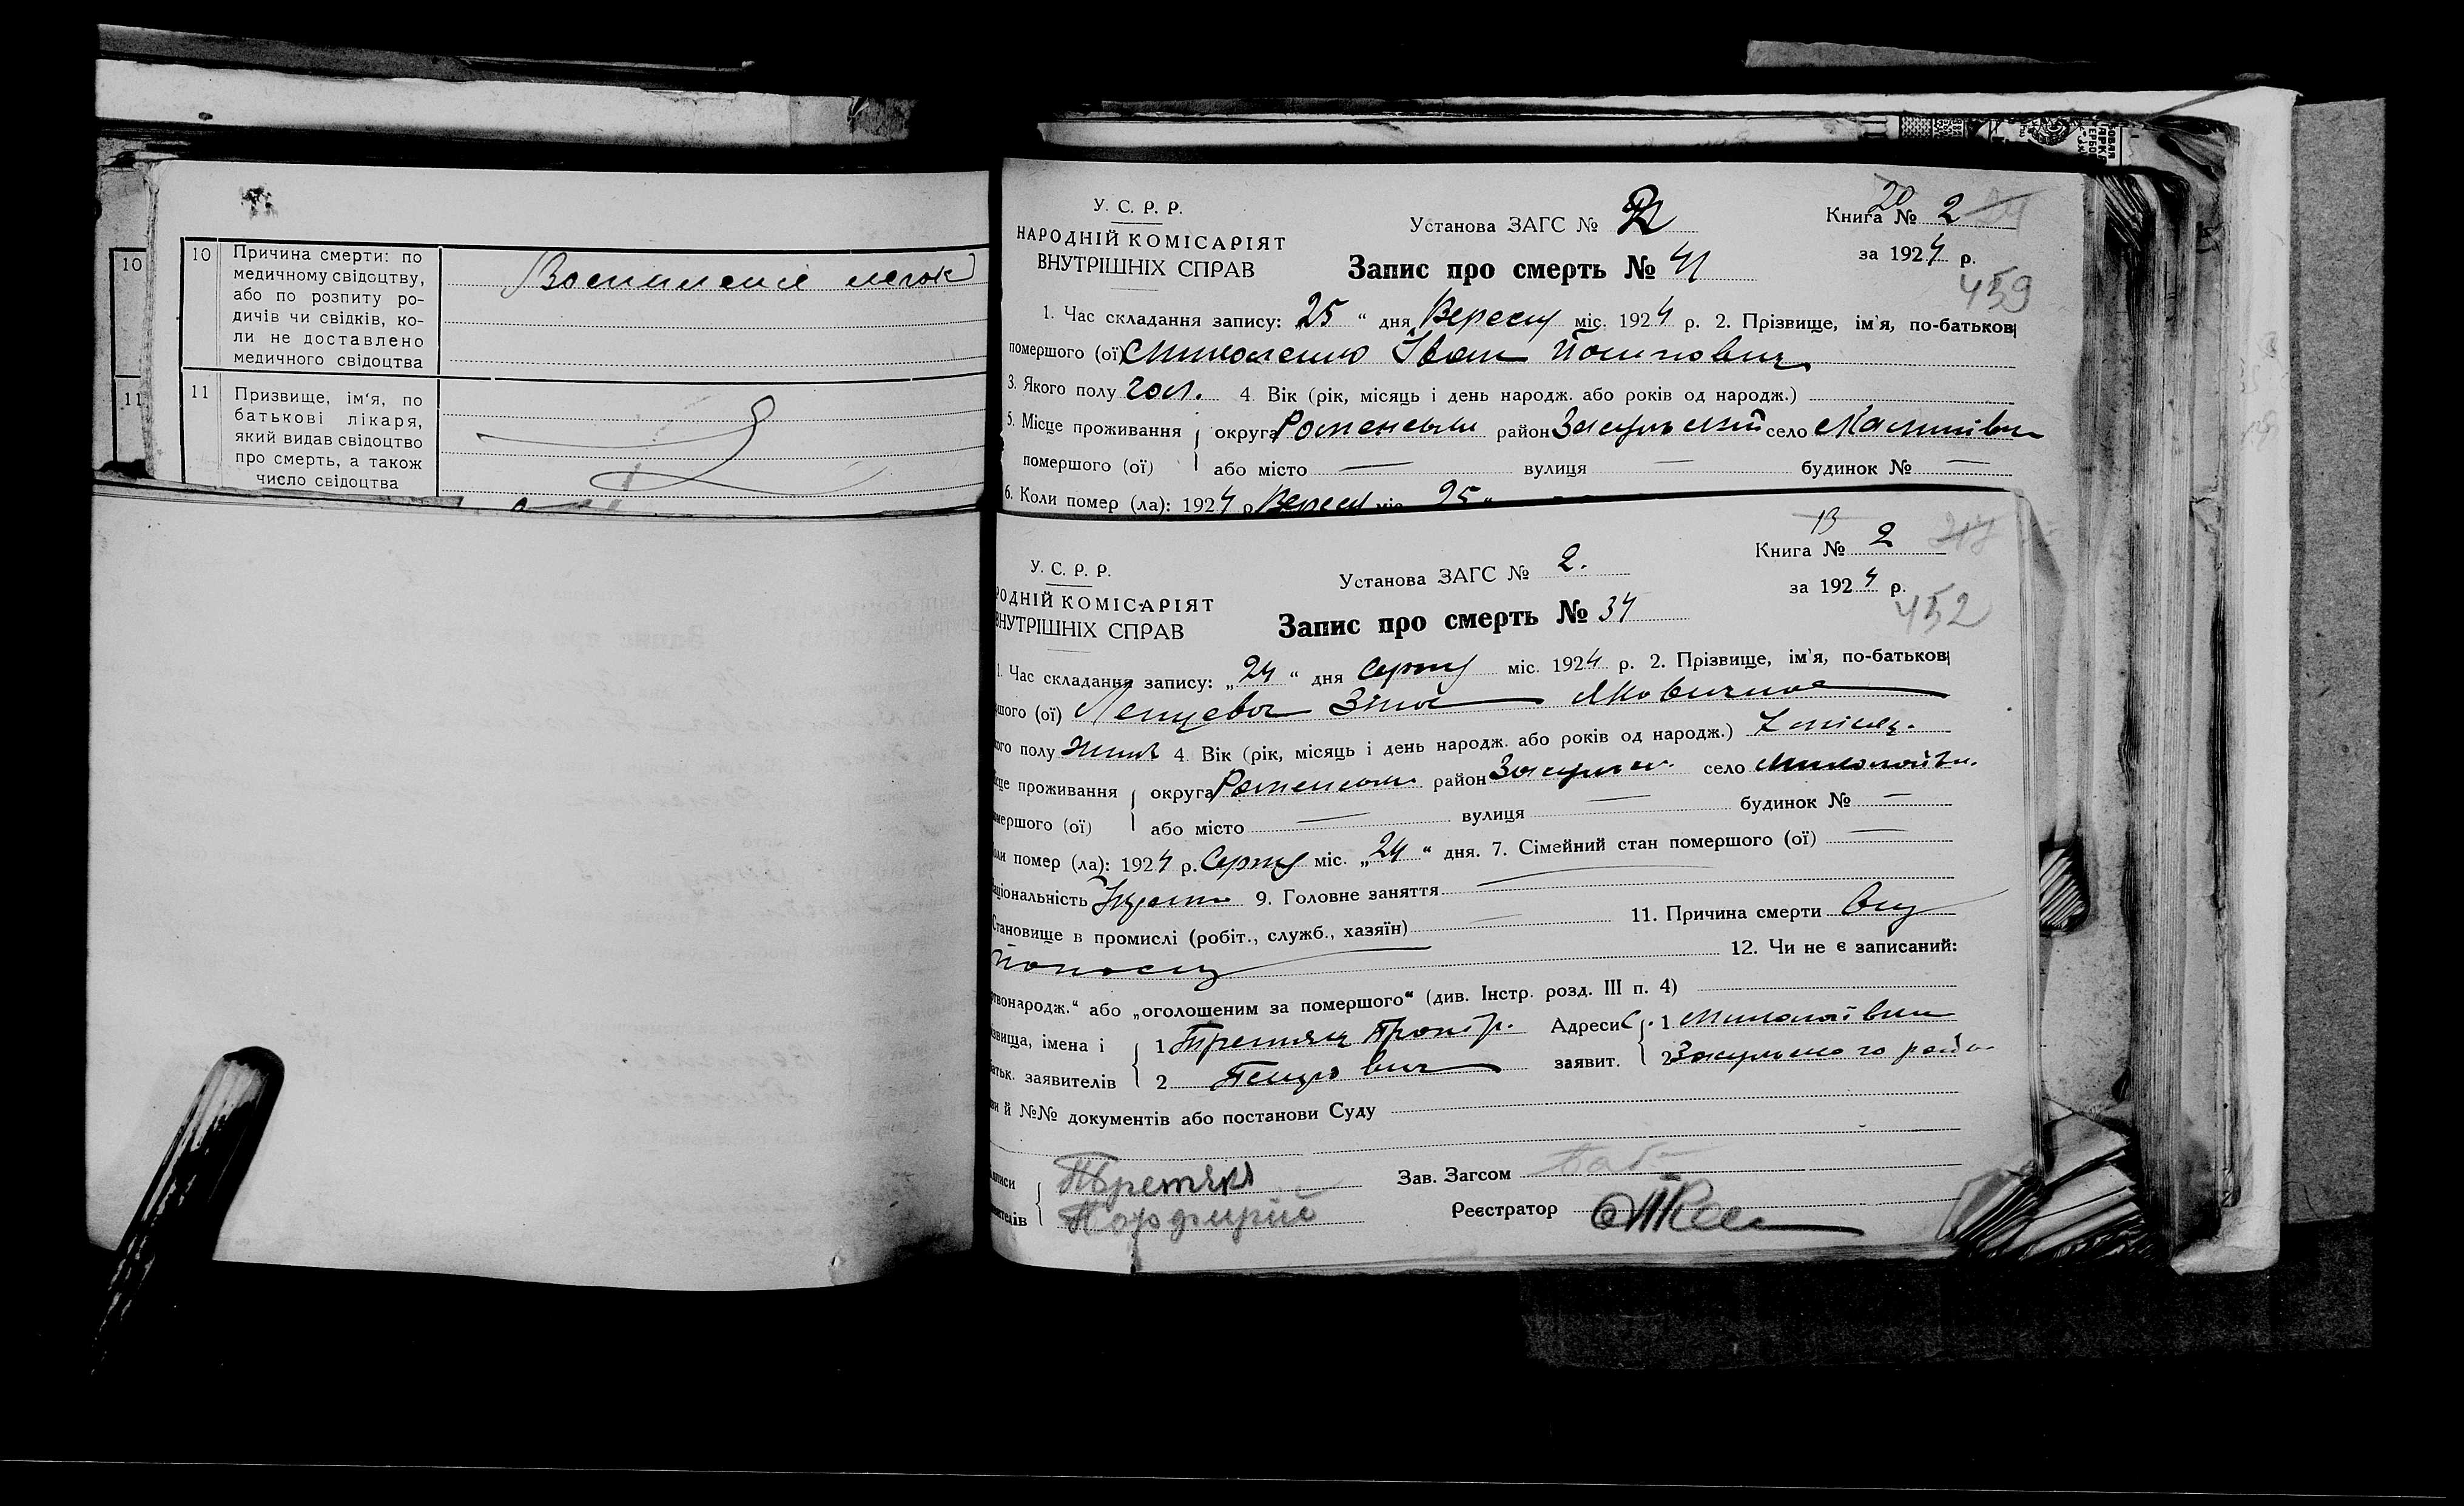 10
11
10 Причина смерти: по
медичному свідоцтву,
або по розпиту ро-
дичів чи свідків, ко-
ли не доставлено
медичного свідоцтва
Воспаление легок
11 Призвище, ім'я, по
батькові лікаря,
який видав свідоцтво
про смерть, а також
число свідоцтва
У. С. Р. Р.
НАРОДНІЙ КОМІСАРІЯТ
ВНУТРІШНІХ СПРАВ
Установа ЗАГС № 2
Запис про смерть № 41
20
Книга № 2
за 1924 р.
459
1. Час складання запису: 25 " дня Вересня міс. 1924 р. 2. Прізвище, ім'я, по-батьков
помершого (ої) Миколенко Іван
3. Якого полу чол. 4. Вік (рік, місяць і день народж. або років од народж.)
5. Місце проживання округа Роменська район Засульський село
помершого (ої) або місто — вулиця — будинок № —
6. Коли помер (ла): 1924 р. Вересня міс. 25 "
У. С. Р. Р.
РОДНІЙ КОМІСАРІЯТ
ВНУТРІШНІХ СПРАВ
Установа ЗАГС № 2.
Запис про смерть № 34
13
Книга № 2
за 1924 р.
452
1. Час складання запису: „24 " дня Серпня міс. 1924 р. 2. Прізвище, ім'я, по-батьков
шого (ої) Зіна Яковична
ого полу Жіноч 4. Вік (рік, місяць і день народж. або років од народж.) 7 місяц.
це проживання округа Роменська район Засульськ. село Миколаївк.
мершого (ої) або місто — вулиця — будинок № —
ли помер (ла): 1924 р. Серпня міс. „24 " дня. 7. Сімейний стан помершого (ої) —
аціональність Україн 9. Головне заняття —
Становище в промислі (робіт., служб., хазяїн) — 11. Причина смерти Від
поносу 12. Чи не є записаний:
ртвонародж." або „оголошеним за помершого" (див. Інстр. розд. III п. 4)
звища, імена і 1 Третяк Адреси С. 1 Миколаївки
атьк. заявителів 2 Петрович заявит. 2 Засульського район
ви й №№ документів або постанови Суду
дписи Третяк Зав. Загсом
явителів Порфирій Реєстратор